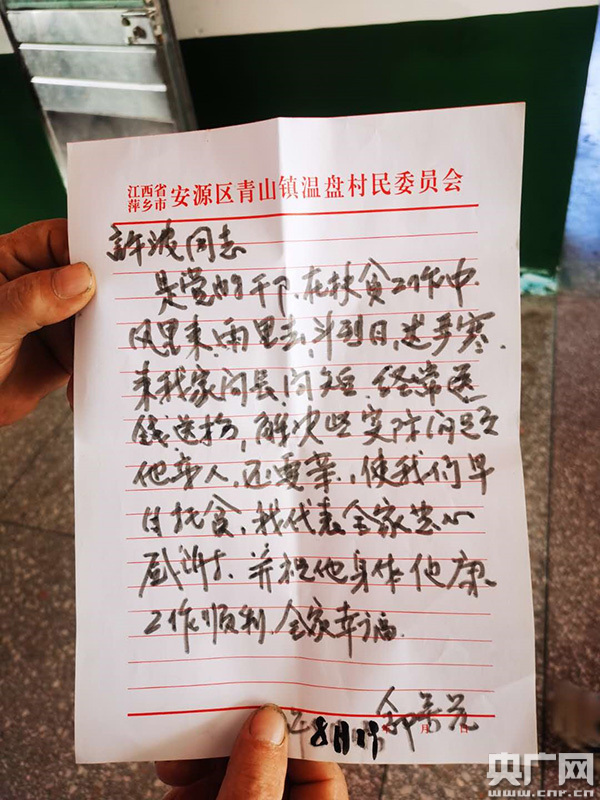 江西省
萍乡市 安源区青山镇温盘村民委员会
許波同志
是党的干下、在扶贫工作中
风里来,雨里去,斗烈日,迷季寒.
来我家问长,问短.经常送
钱送物,解决些实际问题
他亲人,还要亲,使我们早
日托贫,我代表全家忠心
感谢.并祝他身体健康
工作顺利.全家幸福.
8月19
月 日
央广网
www.cnr.cn